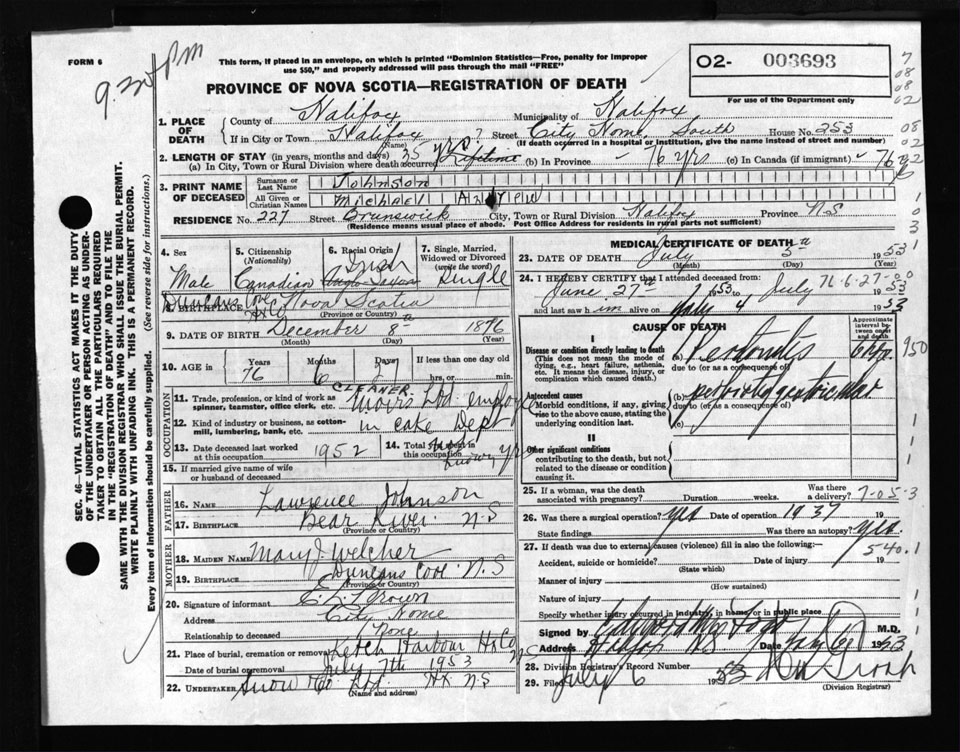 FORM 6
9.30 PM
This form, if placed in an envelope, on which is printed "Dominion Statistics—Free, penalty for improper
use $50," and properly addressed will pass through the mail "FREE"
PROVINCE OF NOVA SCOTIA—REGISTRATION OF DEATH
O2- 003693
For use of the Department only
1. PLACE OF DEATH
County of Halifax Municipality of Halifax
If in City or Town Halifax Street City Home, South House No. 253
(Name) (If death occurred in a hospital or institution, give the name instead of street and number)
2. LENGTH OF STAY (in years, months and days) 35 yrs ?
(a) In City, Town or Rural Division where death occurred Lifetime (b) In Province 76 yrs (c) In Canada (if immigrant) 76
3. PRINT NAME OF DECEASED
Surname or Last Name Johnson
All Given or Christian Names Michael
RESIDENCE No. 227 Street Brunswick City, Town or Rural Division Halifax Province N.S
(Residence means usual place of abode. Post Office Address for residents in rural parts not sufficient)
4. Sex Male
5. Citizenship (Nationality) Canadian
6. Racial Origin Irish
7. Single, Married, Widowed or Divorced (write the word) Single
8. BIRTHPLACE Duncans Cove Hfx Co Nova Scotia
(Province or Country)
9. DATE OF BIRTH December 8th 1876
(Month) (Day) (Year)
10. AGE in
Years 76 Months 6 Days 27 If less than one day old
hrs. or min.
OCCUPATION
11. Trade, profession or kind of work as spinner, teamster, office clerk, etc. CLEANER
12. Kind of industry or business, as cotton-mill, lumbering, bank, etc. in cake Dept
13. Date deceased last worked at this occupation 1952
14. Total yrs. in this occupation
15. If married give name of wife or husband of deceased
FATHER
16. NAME Lawrence Johnson
17. BIRTHPLACE Bear River N.S
(Province or Country)
MOTHER
18. MAIDEN NAME Mary J Welcher
19. BIRTHPLACE Duncans Cove N.S
(Province or Country)
20. Signature of informant
Address City Home
Relationship to deceased None
21. Place of burial, cremation or removal Ketch Harbour Hfx Co N.S
Date of burial or removal July 7th 1953
22. UNDERTAKER Snow Co Ltd. Hfx N.S
(Name and address)
MEDICAL CERTIFICATE OF DEATH
23. DATE OF DEATH July 5th 1953
(Month) (Day) (Year)
24. I HEREBY CERTIFY that I attended deceased from
June 27th 1953 to July 1953
and last saw him alive on July 4 1953
76-6-27-00
CAUSE OF DEATH
Approximate interval between onset and death
I
Disease or condition directly leading to death
(This does not mean the mode of dying, e.g., heart failure, asthenia, etc. It means the disease, injury, or complication which caused death.)
(a) Peritonitis
due to (or as a consequence of)
Antecedent causes
Morbid conditions, if any, giving rise to the above cause, stating the underlying condition last.
(b)
due to (or as a consequence of)
(c)
II
Other significant conditions
contributing to the death, but not related to the disease or condition causing it.
25. If a woman, was the death associated with pregnancy? Duration weeks. Was there a delivery?
26. Was there a surgical operation? yes Date of operation 1937 19
State findings Was there an autopsy? yes
27. If death was due to external causes (violence) fill in also the following:—
540.1
Accident, suicide or homicide? Date of injury 19
(State which)
Manner of injury
(How sustained)
Nature of injury
Specify whether injury occurred in industry, in home, or in public place
Signed by M.D.
Address Halifax N.S. Date July 6 1953
28. Division Registrar's Record Number
29. Filed July 6 1953
(Division Registrar)
SEC. 46—VITAL STATISTICS ACT MAKES IT THE DUTY
OF THE UNDERTAKER OR PERSON ACTING AS UNDER-
TAKER TO OBTAIN ALL THE PARTICULARS REQUIRED
IN THE "REGISTRATION OF DEATH" AND TO FILE THE
SAME WITH THE DIVISION REGISTRAR WHO SHALL ISSUE THE BURIAL PERMIT.
WRITE PLAINLY WITH UNFADING INK. THIS IS A PERMANENT RECORD.
Every item of Information should be carefully supplied. (See reverse side for instructions.)